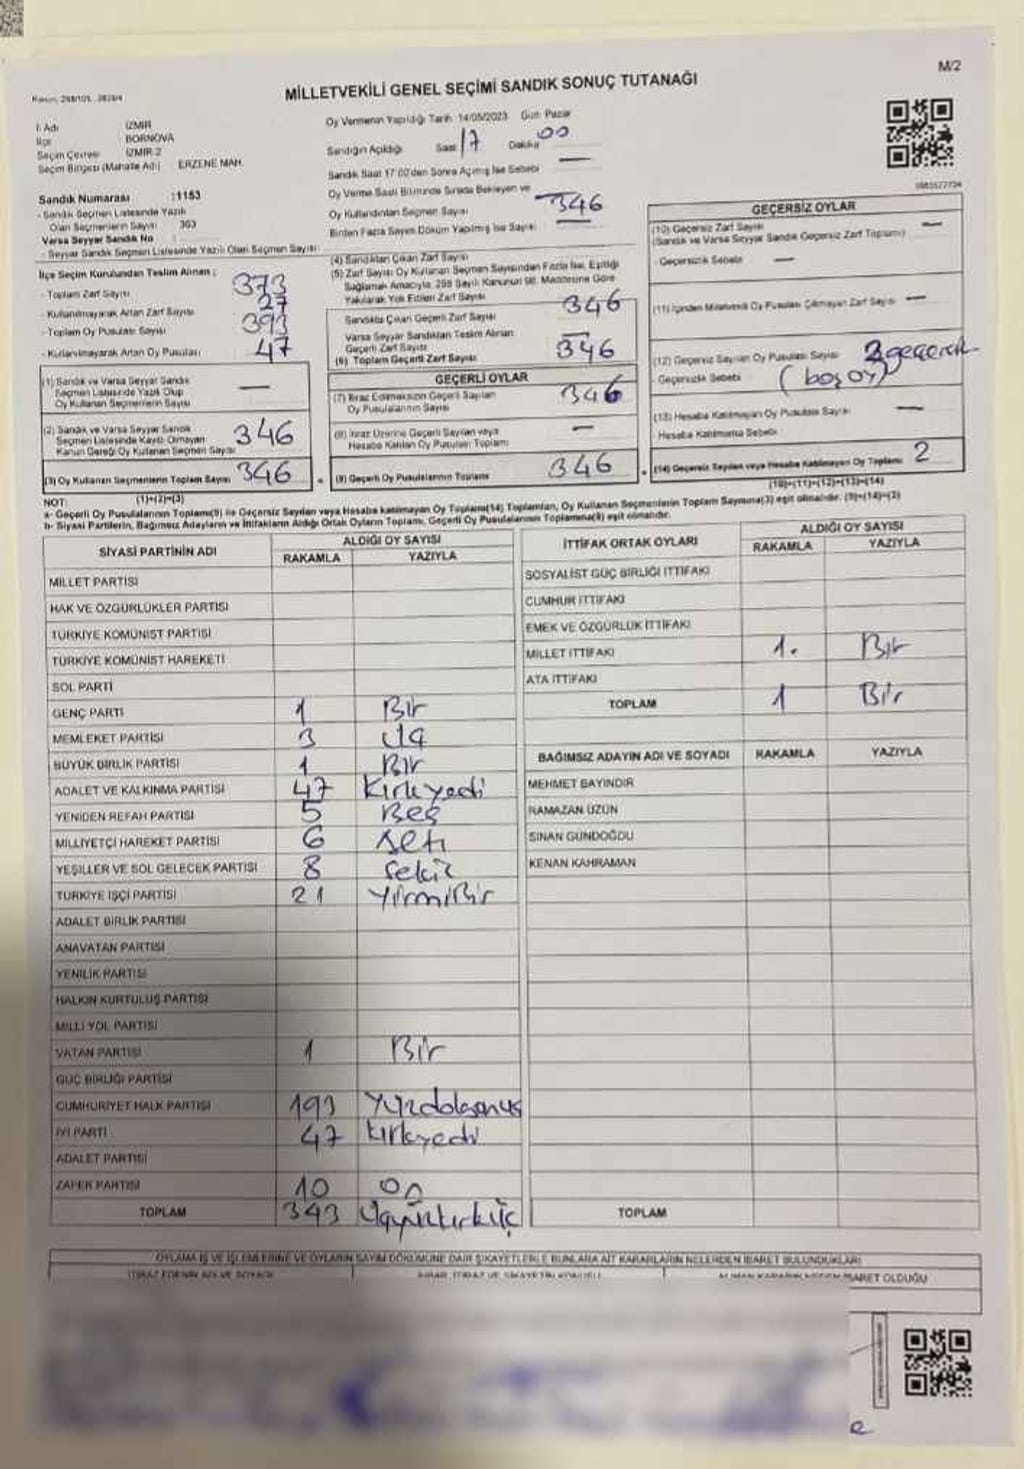 M/2
MİLLETVEKİLİ GENEL SEÇİMİ SANDIK SONUÇ TUTANAĞI
İl Adı İZMİR
İlçe BORNOVA
Seçim Çevresi İZMİR 2
Seçim Bölgesi (Mahalle Adı) ERZENE MAH.
Sandık Numarası :1153
- Sandık Seçmen Listesinde Yazılı
Olan Seçmenlerin Sayısı 363
Varsa Seyyar Sandık No
- Seyyar Sandık Seçmen Listesinde Yazılı Olan Seçmen Sayısı
Oy Vermenin Yapıldığı Tarih 14/05/2023 Gün: Pazar
Sandığın Açıldığı Saat 17 Dakika 00
Sandık Saat 17.00'den Sonra Açılmış İse Sebebi —
Oy Verme Saati Bitiminde Sırada Bekleyen ve
Oy Kullandırılan Seçmen Sayısı 346
Birden Fazla Sayım Döküm Yapılmış İse Sayısı —
İlçe Seçim Kurulundan Teslim Alınan :
- Toplam Zarf Sayısı 373
- Kullanılmayarak Artan Zarf Sayısı 27
- Toplam Oy Pusulası Sayısı 393
- Kullanılmayarak Artan Oy Pusulası 47
(1) Sandık ve Varsa Seyyar Sandık
Seçmen Listesinde Yazılı Olup
Oy Kullanan Seçmenlerin Sayısı —
(2) Sandık ve Varsa Seyyar Sandık
Seçmen Listesinde Kayıtlı Olmayan
Kanun Gereği Oy Kullanan Seçmen Sayısı 346
(3) Oy Kullanan Seçmenlerin Toplam Sayısı 346
(1)+(2)=(3)
(4) Sandıktan Çıkan Zarf Sayısı
(5) Zarf Sayısı Oy Kullanan Seçmen Sayısından Fazla İse, Eşitliği
Sağlamak Amacıyla, 298 Sayılı Kanunun 98. Maddesine Göre
Yakılarak Yok Edilen Zarf Sayısı
Sandıkta Çıkan Geçerli Zarf Sayısı 346
Varsa Seyyar Sandıktan Teslim Alınan
Geçerli Zarf Sayısı —
(6) Toplam Geçerli Zarf Sayısı 346
GEÇERLİ OYLAR
(7) İtiraz Edilmeksizin Geçerli Sayılan
Oy Pusulalarının Sayısı 346
(8) İtiraz Üzerine Geçerli Sayılan veya
Hesaba Katılan Oy Pusulası Toplamı —
(9) Geçerli Oy Pusulalarının Toplamı 346
GEÇERSİZ OYLAR
(10) Geçersiz Zarf Sayısı —
(Sandık ve Varsa Seyyar Sandık Geçersiz Zarf Toplamı)
- Geçersizlik Sebebi —
(11) İçinden Milletvekili Oy Pusulası Çıkmayan Zarf Sayısı —
(12) Geçersiz Sayılan Oy Pusulası Sayısı
- Geçersizlik Sebebi (boş oy)
(13) Hesaba Katılmayan Oy Pusulası Sayısı —
- Hesaba Katılmama Sebebi
(14) Geçersiz Sayılan veya Hesaba Katılmayan Oy Toplamı 2
(10)+(11)+(12)+(13)=(14)
NOT:
a- Geçerli Oy Pusulalarının Toplamı(9) ile Geçersiz Sayılan veya Hesaba katılmayan Oy Toplamı(14) Toplamları, Oy Kullanan Seçmenlerin Toplam Sayısına(3) eşit olmalıdır. (9)+(14)=(3)
b- Siyasi Partilerin, Bağımsız Adayların ve İttifakların Aldığı Ortak Oyların Toplamı, Geçerli Oy Pusulalarının Toplamına(9) eşit olmalıdır.
SİYASİ PARTİNİN ADI ALDIĞI OY SAYISI
RAKAMLA YAZIYLA
MİLLET PARTİSİ
HAK VE ÖZGÜRLÜKLER PARTİSİ
TÜRKİYE KOMÜNİST PARTİSİ
TÜRKİYE KOMÜNİST HAREKETİ
SOL PARTİ
GENÇ PARTİ 1 Bir
MEMLEKET PARTİSİ 3 Üç
BÜYÜK BİRLİK PARTİSİ 1 Bir
ADALET VE KALKINMA PARTİSİ 47 Kırkyedi
YENİDEN REFAH PARTİSİ 5 Beş
MİLLİYETÇİ HAREKET PARTİSİ 6 Altı
YEŞİLLER VE SOL GELECEK PARTİSİ 8 Sekiz
TÜRKİYE İŞÇİ PARTİSİ 21 YirmiBir
ADALET BİRLİK PARTİSİ
ANAVATAN PARTİSİ
YENİLİK PARTİSİ
HALKIN KURTULUŞ PARTİSİ
MİLLİ YOL PARTİSİ
VATAN PARTİSİ 1 Bir
GÜÇ BİRLİĞİ PARTİSİ
CUMHURİYET HALK PARTİSİ 193
İYİ PARTİ 47 Kırkyedi
ADALET PARTİSİ
ZAFER PARTİSİ 10 On
TOPLAM 343 Üçyüzkırküç
İTTİFAK ORTAK OYLARI ALDIĞI OY SAYISI
RAKAMLA YAZIYLA
SOSYALİST GÜÇ BİRLİĞİ İTTİFAKI
CUMHUR İTTİFAKI
EMEK VE ÖZGÜRLÜK İTTİFAKI
MİLLET İTTİFAKI 1. Bir
ATA İTTİFAKI
TOPLAM 1 Bir
BAĞIMSIZ ADAYIN ADI VE SOYADI RAKAMLA YAZIYLA
MEHMET BAYINDIR
RAMAZAN UZUN
SİNAN GÜNDOĞDU
KENAN KAHRAMAN
TOPLAM
OYLAMA İŞ VE İŞLEMLERİNE VE OYLARIN SAYIM DÖKÜMÜNE DAİR ŞİKAYETLERLE BUNLARA AİT KARARLARIN NELERDEN İBARET BULUNDUKLARI